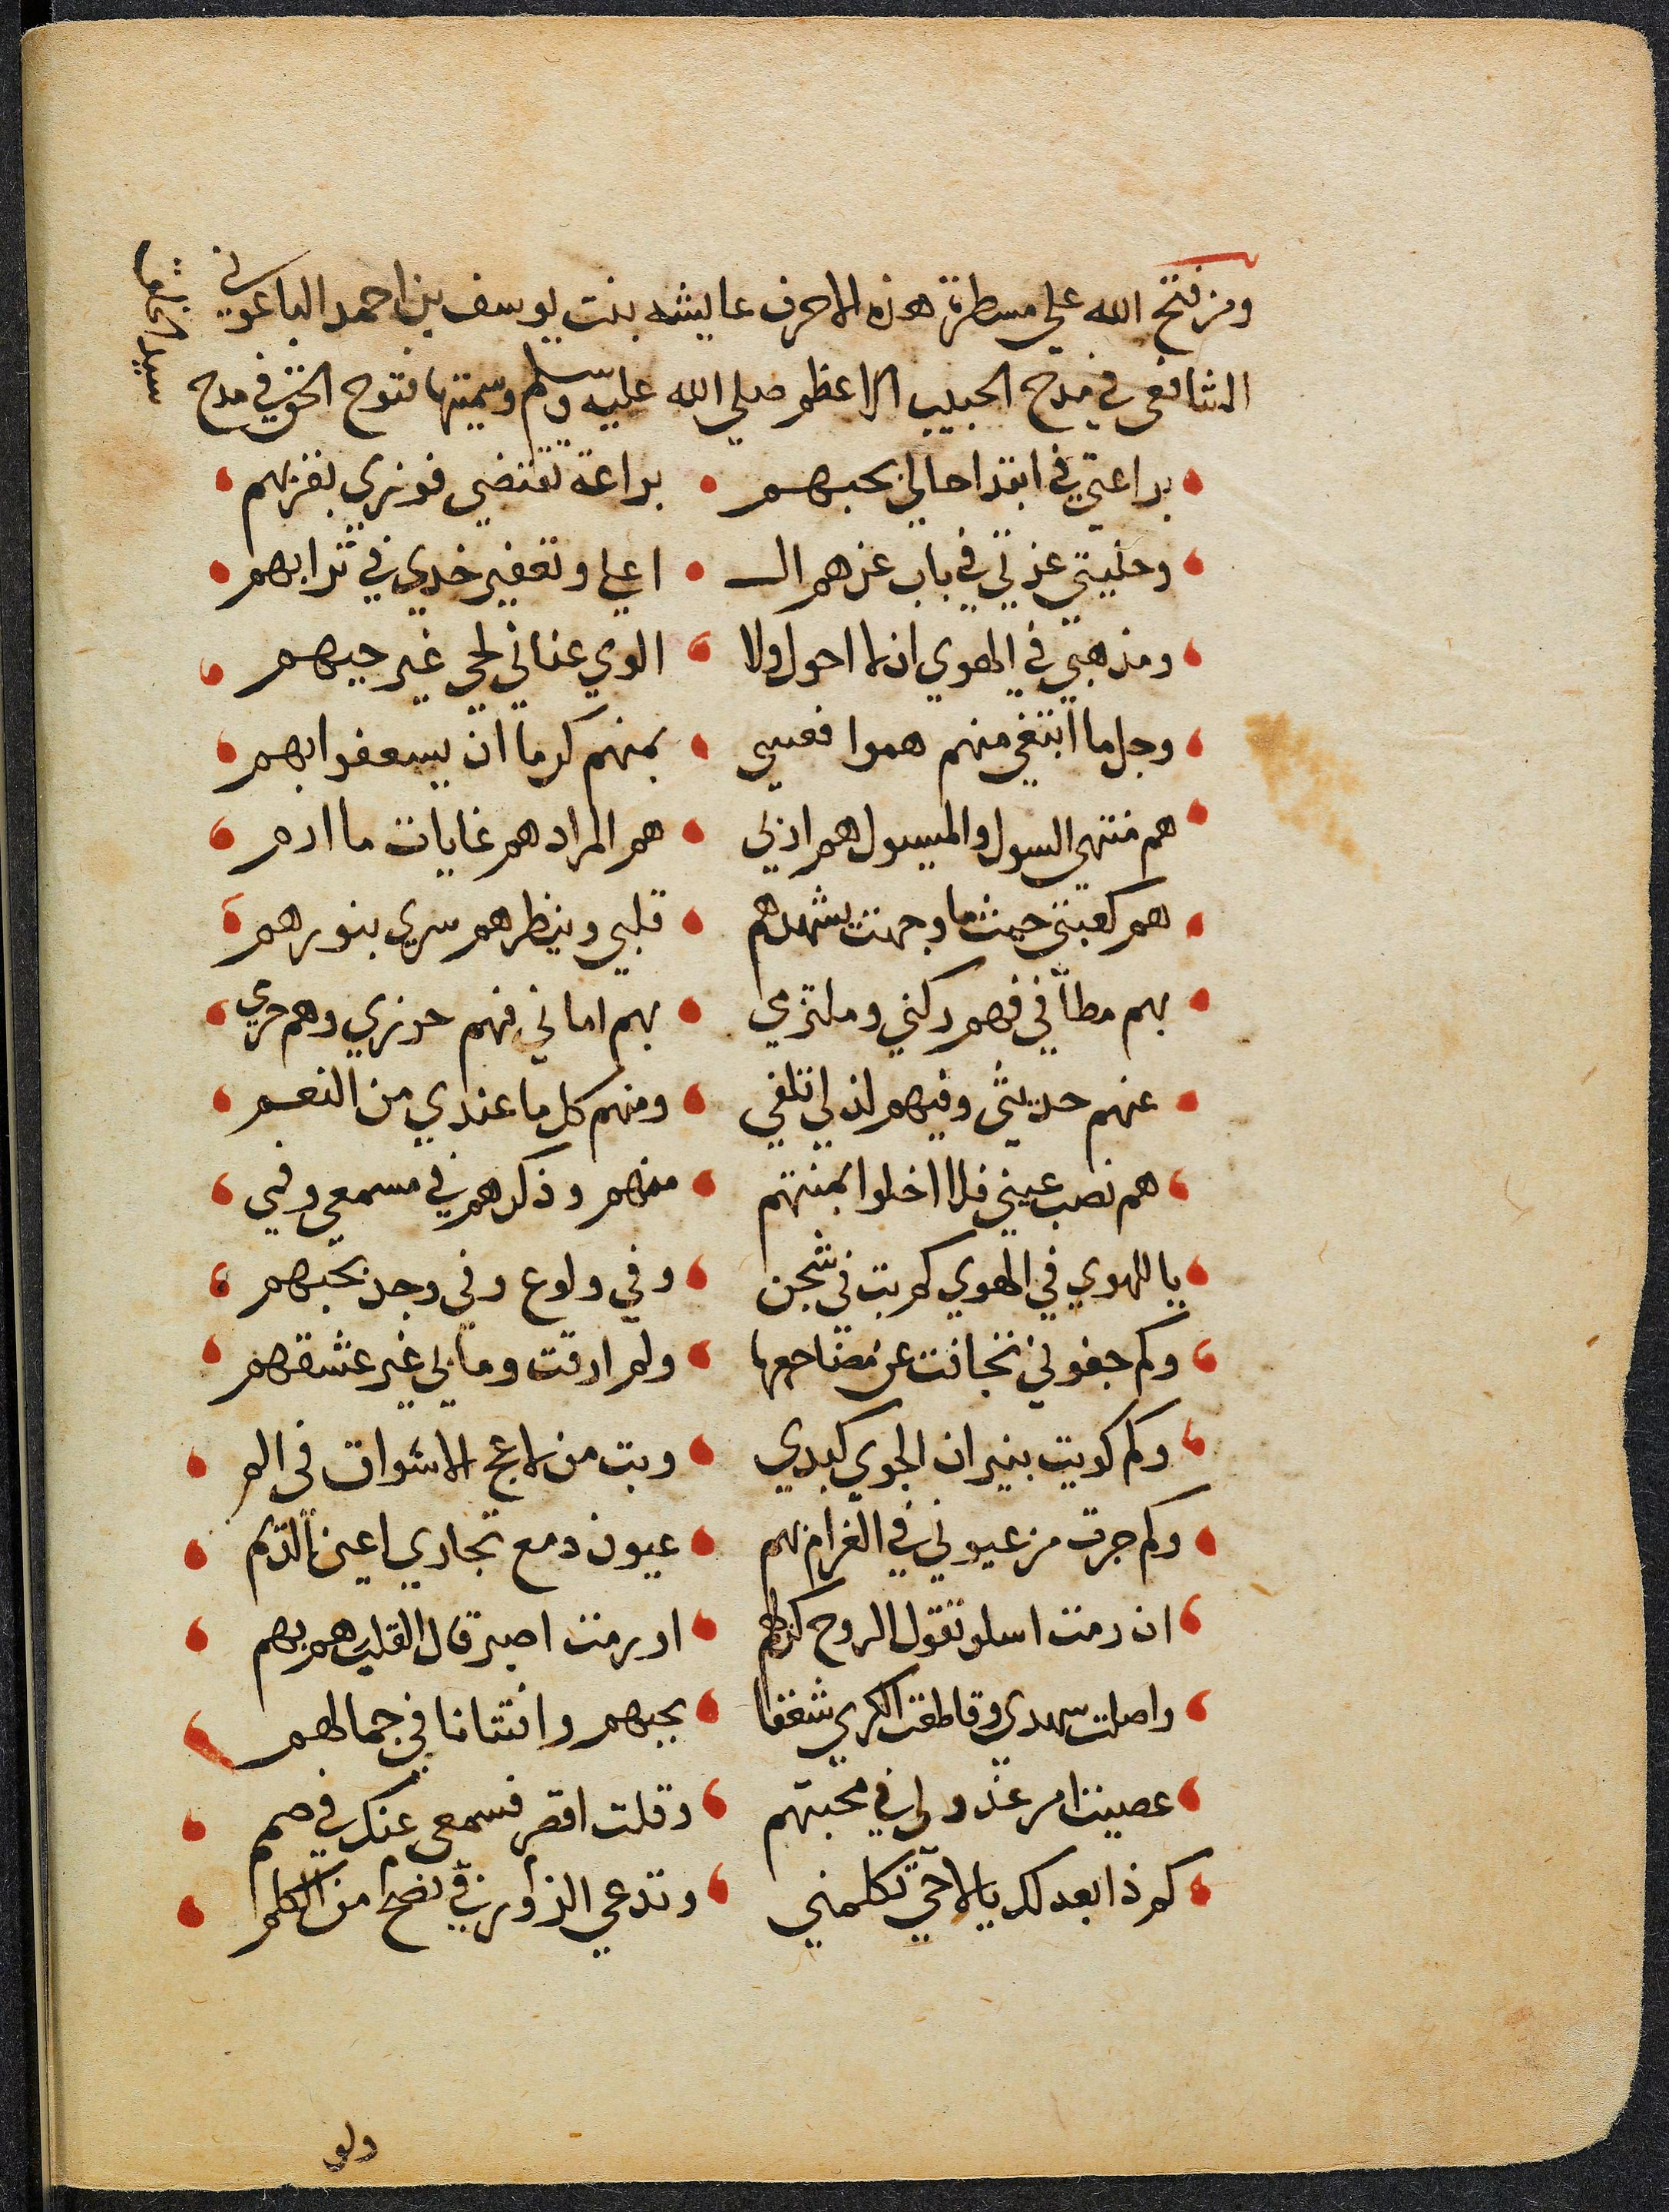 ومن فتح الله علي مسطرة هذه الاحرف عايشه بنت يوسف بن احمد الباعوني
الشافعي في مدح الحبيب الاعظم صلي الله عليه وسلم وسميتها فتوح الحق في مدح
سيد الخلق
براعتي في ابتدا حالي بحبهم براعة تقتضي فوزي بقربهم
وحليتي عزتي في باب عزهم ال اعلي وتعفير خدي في ثرابهم
ومذهبي في الهوي ان لا احول ولا الوي عناني لحي غير حبهم
وجل ما ابتغي منهم هموا فعسي بمنهم كرما ان يسعفوا بهم
هم منتهي السول والميسول هم اربي هم المراد هم غايات ما ارم
هم كعبتي حيث ما وجهت يشهدهم قلبي وينظرهم سري بنورهم
بهم مطافي فهم ركني وملتزمي بهم اماني فهم حرزي وهم حرمي
عنهم حديثي وفيهم لذ لي تلفي ومنهم كل ما عندي من النعم
هم نصب عيني فلا اخلوا بمنتهم منهم وذكرهم في مسمعي وفمي
يا للهوي في الهوي كم بت في شجن وفي ولوع وفي وجد بحبهم
وكم جفوني تجافت عن مضاجعها ولم ارقت وما بي غير عشقهم
وكم كويت بنيران الجوي كبدي وبت من لاعج الاشواق في الم
وكم جرت من عيوني في الغرام بهم عيون دمع تجاري اعين الديم
ان رمت اسلو تقول الروح كن لهم او رمت اصبر قال القلب هم بهم
واصلت سهدي وقاطعت الكري شغفا بحبهم وافتتانا في جمالهم
عصيت امر عذولي في محبتهم وقلت اقصر فسمعي عنك في صمم
كم ذا بعدلك يا لاحي تكلمني وتدعي الزور في نصح من الكلم
ولو